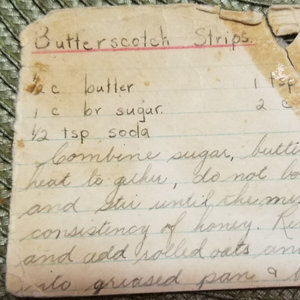 Butterscotch Strips.
½ c butter 1 tsp
1 c br sugar. 2 c
½ tsp soda
Combine sugar, butte
heat to gether, do not bo
and stir until the mix
consistency of honey. Re
and add rolled oats an
into greased pan &